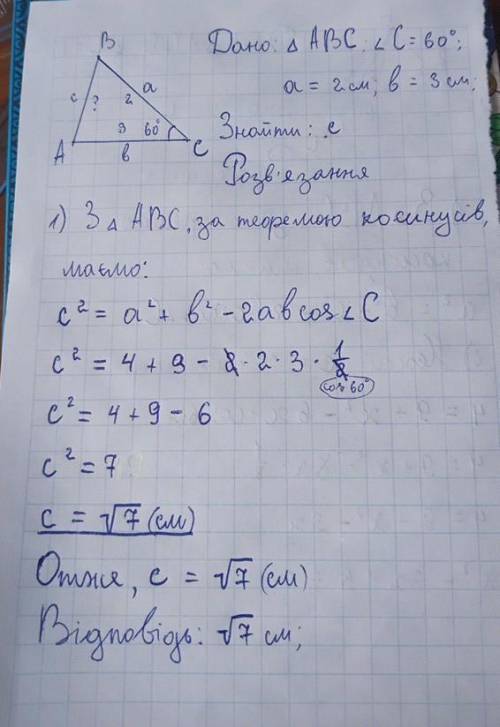 B
Дано: △ ABC: ∠C = 60°;
c ? 2 a
a = 2 см; b = 3 см;
3 60°
A b C
Знайти: c
Розв'язання
1) З △ ABC, за теоремою косинусів,
маємо:
c² = a² + b² - 2ab cos∠C
c² = 4 + 9 - 2 · 2 · 3 · 1/2
cos 60°
c² = 4 + 9 - 6
c² = 7
c = √7 (см)
Отже, c = √7 (см)
Відповідь: √7 см;